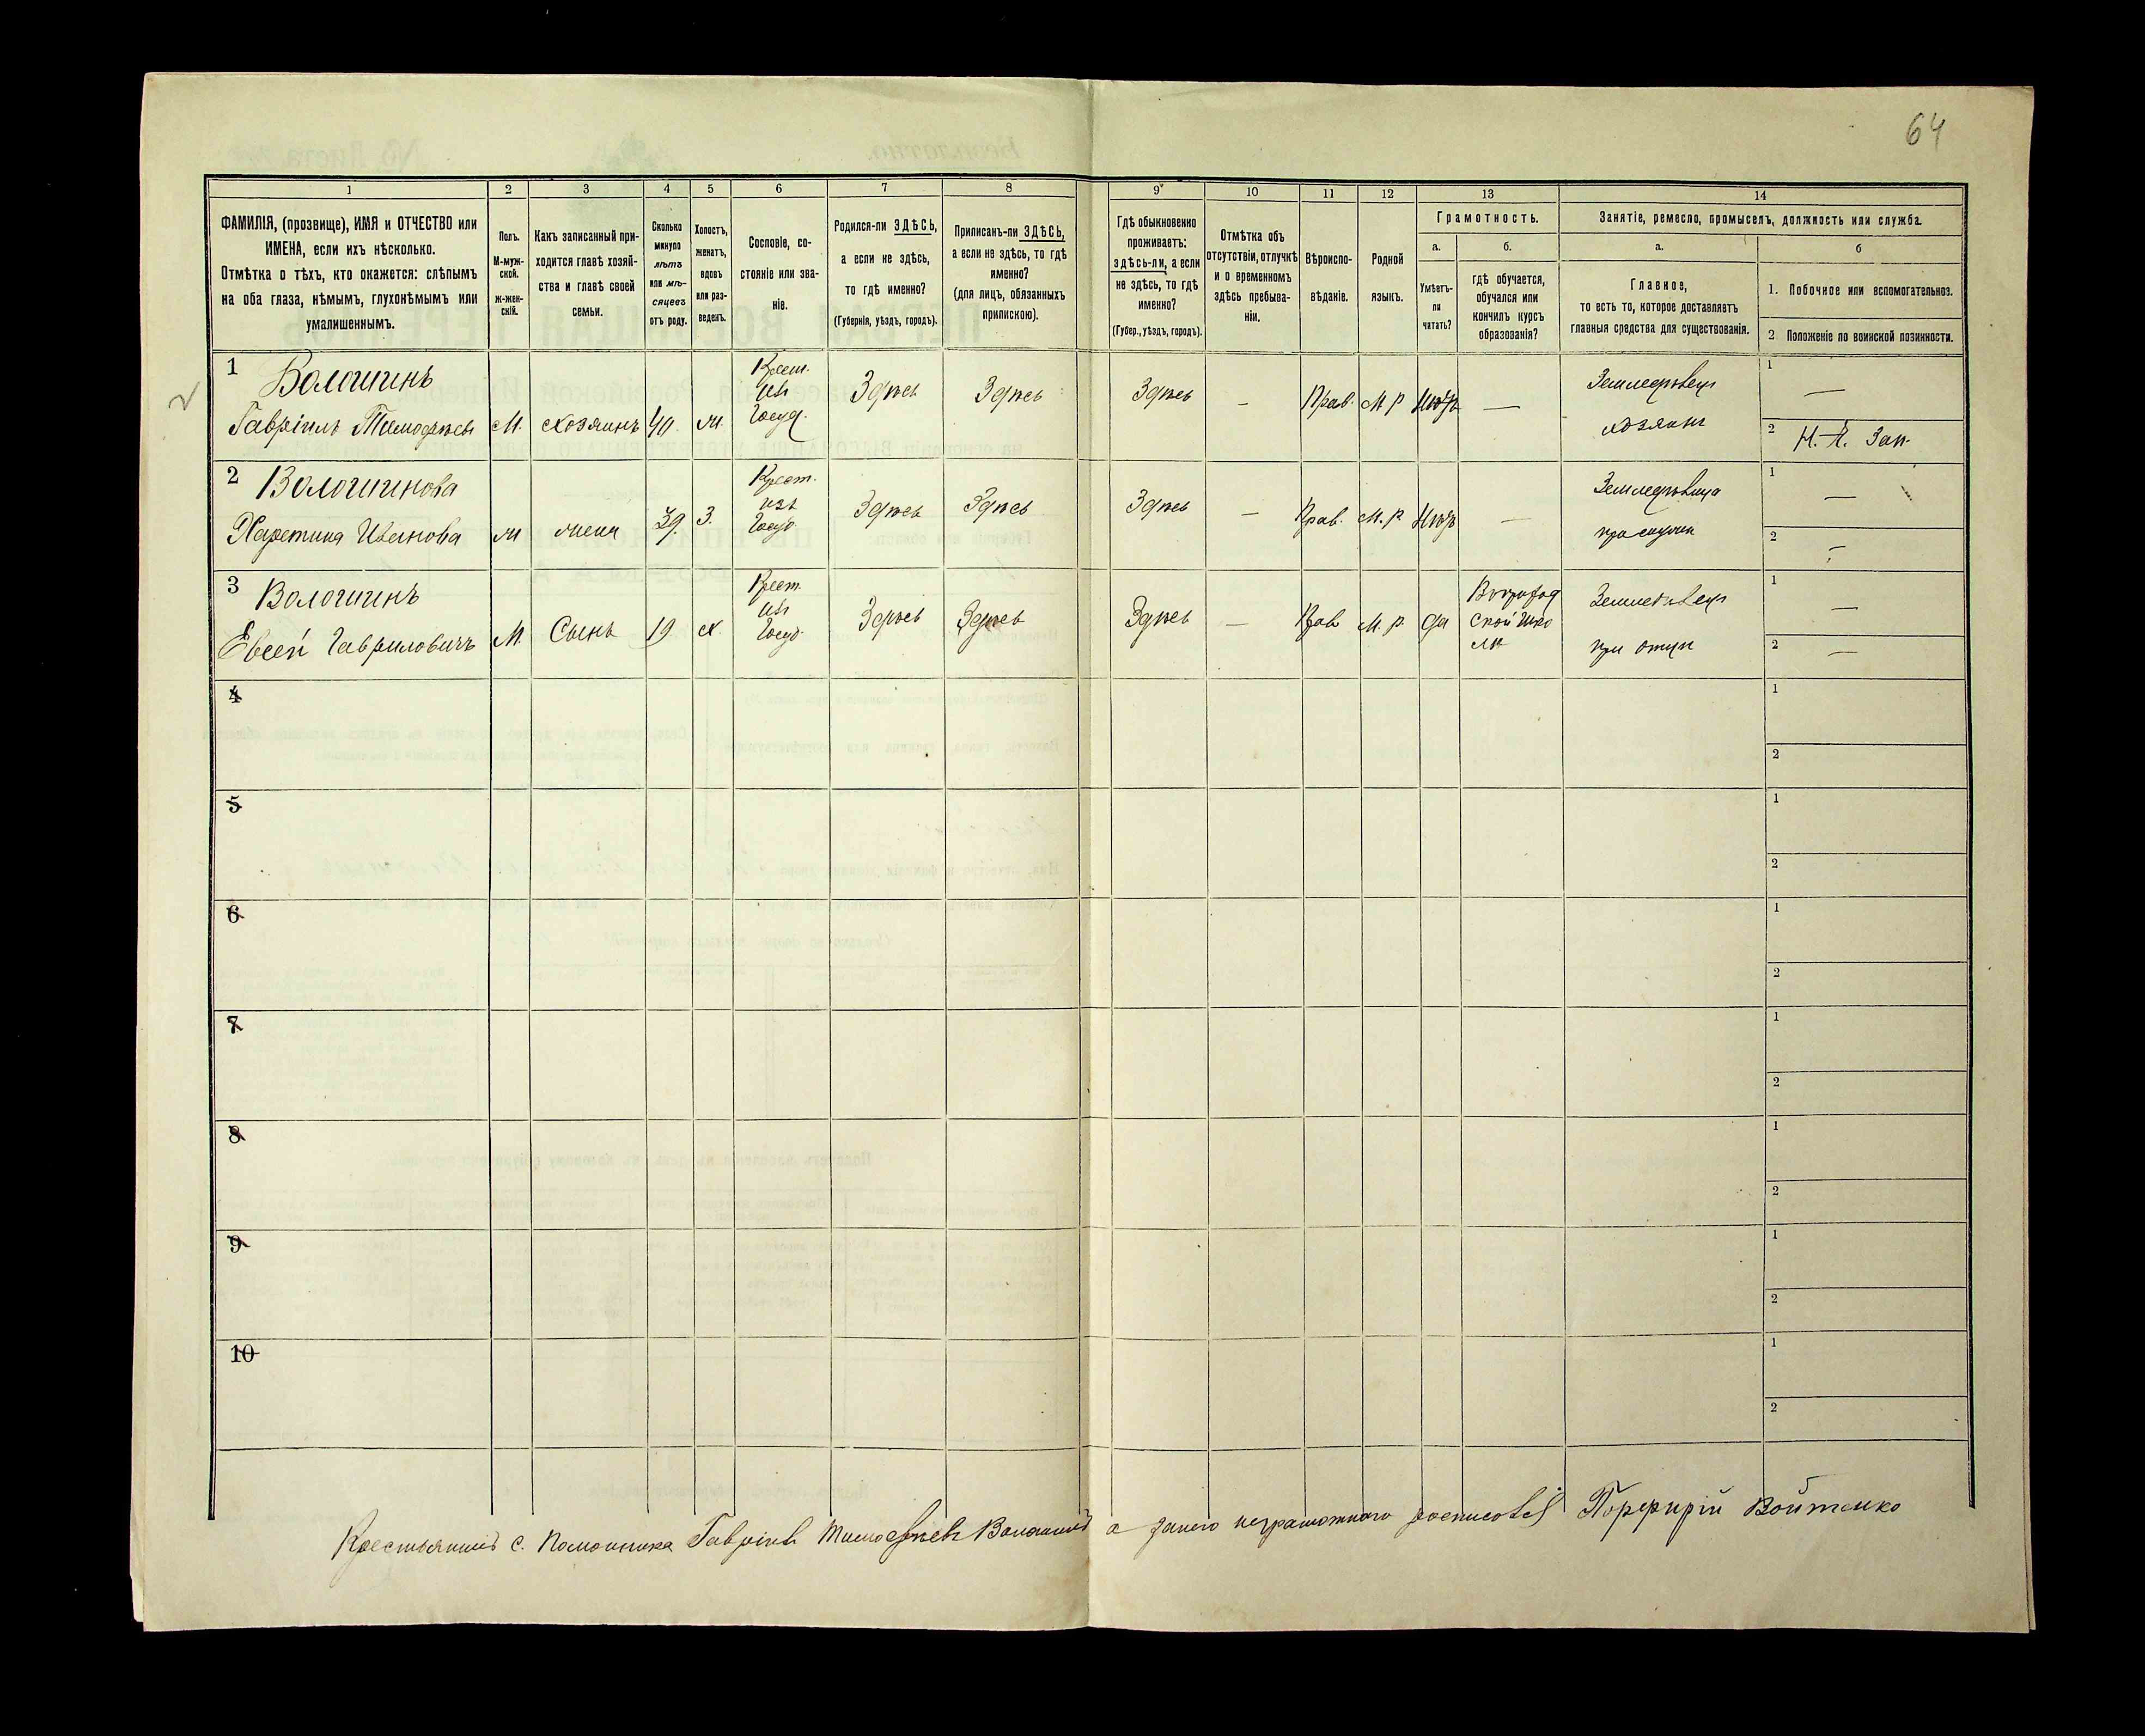 64
1 2 3 4 5 6 7 8 9 10 11 12 13 14
ФАМИЛІЯ, (прозвище), ИМЯ и ОТЧЕСТВО или
ИМЕНА, если ихъ нѣсколько.
Отмѣтка о тѣхъ, кто окажется: слѣпымъ
на оба глаза, нѣмымъ, глухонѣмымъ или
умалишеннымъ.
Полъ.
М-муж-
ской.
ж-жен-
скій.
Какъ записанный при-
ходится главѣ хозяй-
ства и главѣ своей
семьи.
Сколько
минуло
лѣтъ
или мѣ-
сяцевъ
отъ роду.
Холостъ,
женатъ,
вдовъ
или раз-
веденъ.
Сословіе, со-
стояніе или зва-
ніе.
Родился-ли ЗДѢСЬ,
а если не здѣсь,
то гдѣ именно?
(Губернія, уѣздъ, городъ).
Приписанъ-ли ЗДѢСЬ,
а если не здѣсь, то гдѣ
именно?
(для лицъ, обязанныхъ
припискою).
Гдѣ обыкновенно
проживаетъ:
здѣсь-ли, а если
не здѣсь, то гдѣ
именно?
(Губер., уѣздъ, городъ).
Отмѣтка объ
отсутствіи, отлучкѣ
и о временномъ
здѣсь пребыва-
ніи.
Вѣроиспо-
вѣданіе.
Родной
языкъ.
Грамотность.
а.
Умѣетъ-
ли
читать?
б.
гдѣ обучается,
обучался или
кончилъ курсъ
образованія?
Занятіе, ремесло, промыселъ, должность или служба.
а.
Главное,
то есть то, которое доставляетъ
главныя средства для существованія.
б
1. Побочное или вспомогательное.
2 Положеніе по воинской повинности.
1 Волошинъ Крест. Земледѣлец 1 —
изъ Здѣсь Здѣсь Здѣсь — Прав. М р Нѣтъ —
Гавріилъ Тимофѣевъ М. Хозяинъ 40. ж. Госуд. хозяинъ 2 Зап.
2 Волошинова Крест. Земледѣлица 1 —
изъ Здѣсь Здѣсь Здѣсь — Прав. М. р Нѣтъ —
Харетина Иванова ж жена 39. З. Госуд. при мужи 2 —
3 Волошинъ Крест. Землед. 1 —
изъ Здѣсь Здѣсь Здѣсь — Прав М. р. да ской Шко
Евсей Гавриловичъ М. Сынъ 19 х. Госуд. лѣ при отци 2 —
4 1
2
5 1
2
6 1
2
7 1
2
8 1
2
9 1
2
10 1
2
Крестьянинъ с. Гавріилъ Тимофѣевъ Волошинъ а занего неграмотного росписовсѧ Порфирій Войтенко